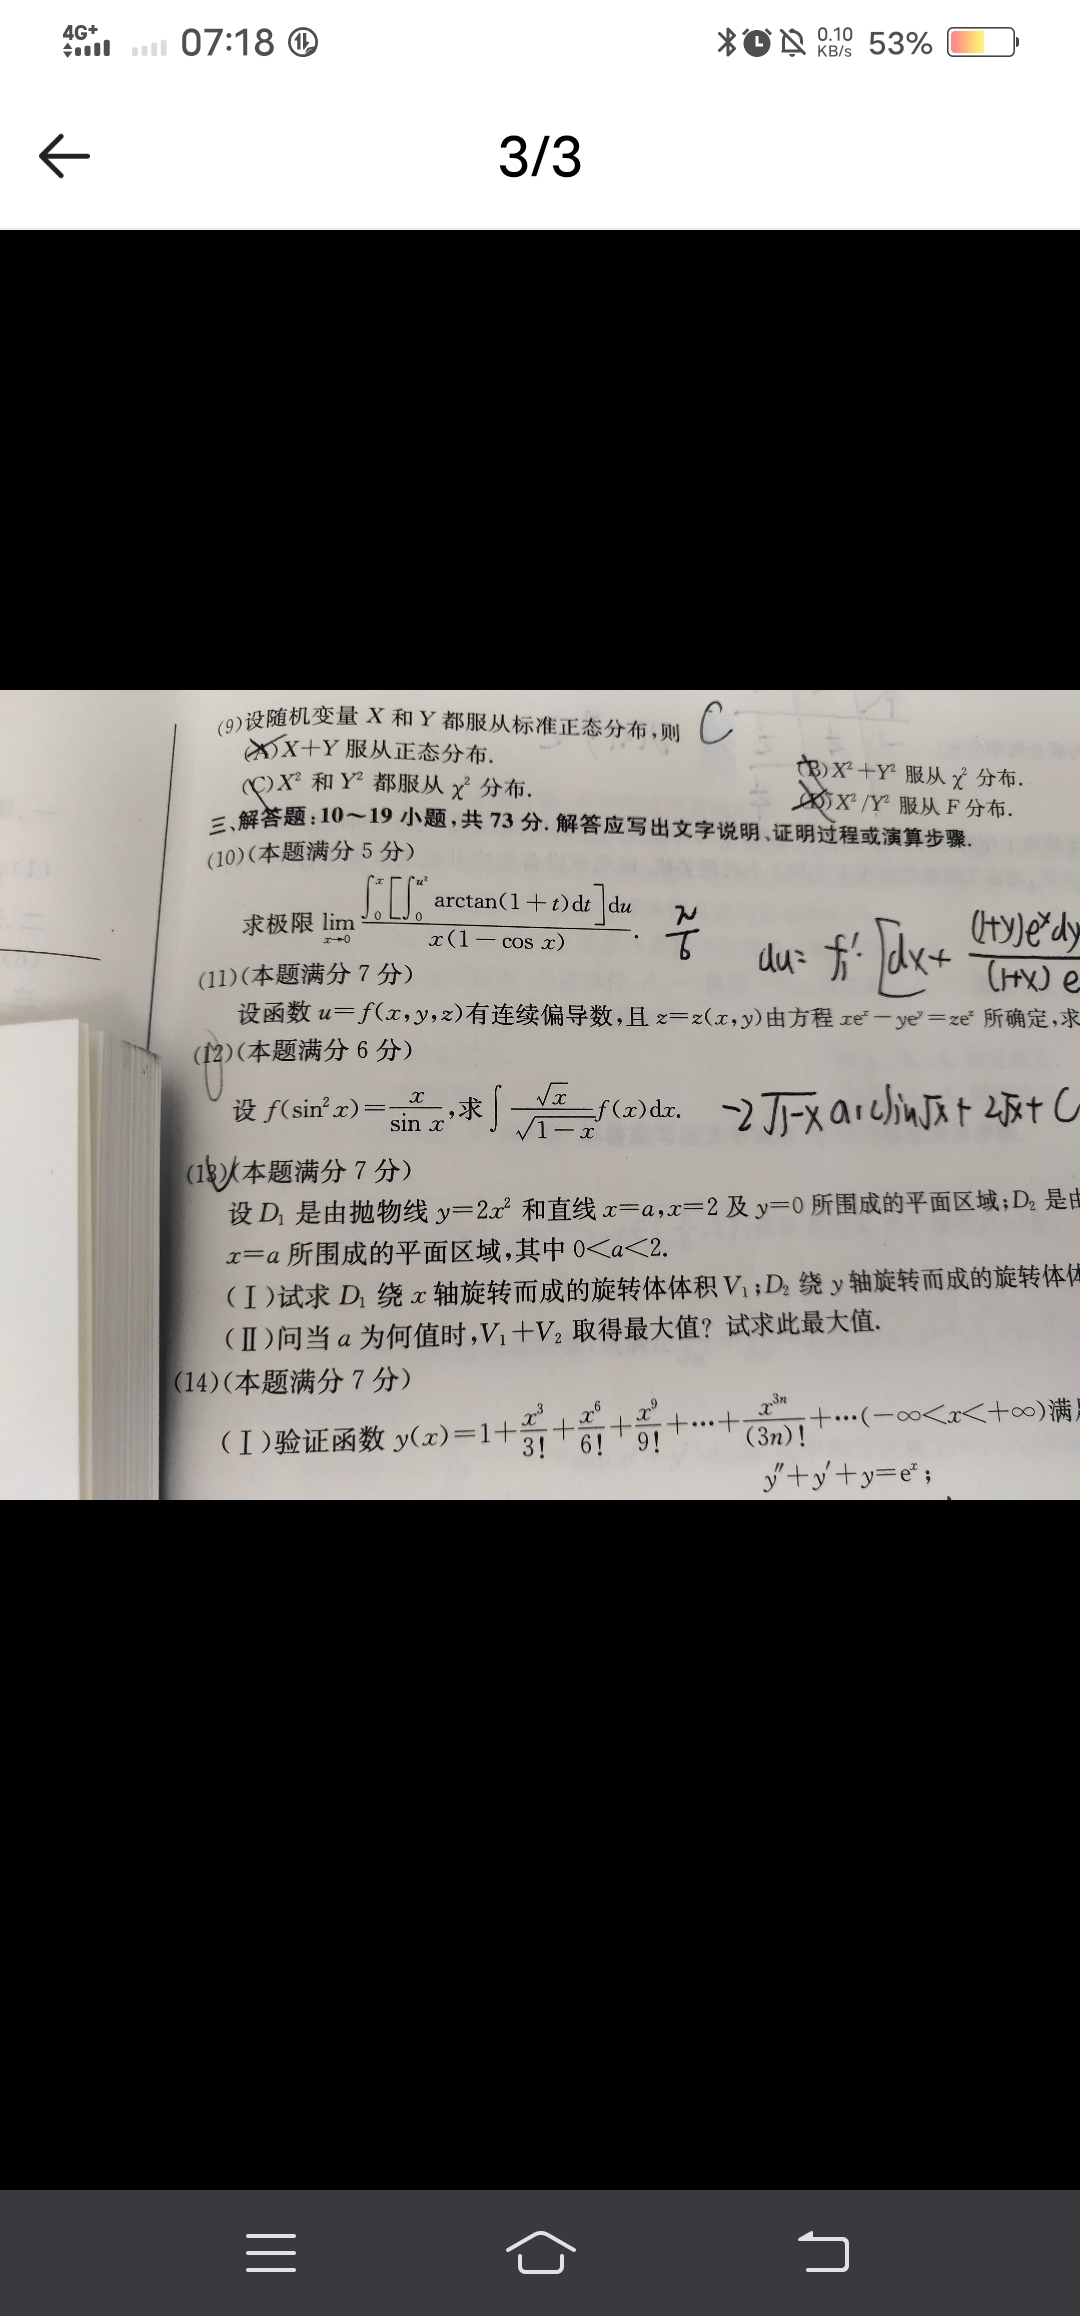 4G+ 07:18 0.10 KB/s 53%
3/3
(9)设随机变量 X 和 Y 都服从标准正态分布,则 C
(A)X+Y 服从正态分布. (B)X²+Y² 服从 χ² 分布.
(C)X² 和 Y² 都服从 χ² 分布. (D)X²/Y² 服从 F 分布.
三、解答题:10~19 小题,共 73 分.解答应写出文字说明、证明过程或演算步骤.
(10)(本题满分 5 分)
求极限 lim_{x→0} ∫₀ˣ[∫₀^{u²} arctan(1+t)dt]du / x(1-cos x). π/6
du= f₁'·[dx+ (1+y)eˣdy / (1+x)e
(11)(本题满分 7 分)
设函数 u=f(x,y,z)有连续偏导数,且 z=z(x,y)由方程 xeˣ-yeʸ=zeᶻ 所确定,求
(12)(本题满分 6 分)
设 f(sin²x)= x/sin x ,求∫ √x/√(1-x) f(x)dx. -2√(1-x) arcsin√x+2√x+C
(13)(本题满分 7 分)
设 D₁ 是由抛物线 y=2x² 和直线 x=a,x=2 及 y=0 所围成的平面区域;D₂ 是由
x=a 所围成的平面区域,其中 0<a<2.
(Ⅰ)试求 D₁ 绕 x 轴旋转而成的旋转体体积 V₁;D₂ 绕 y 轴旋转而成的旋转体体
(Ⅱ)问当 a 为何值时,V₁+V₂ 取得最大值? 试求此最大值.
(14)(本题满分 7 分)
(Ⅰ)验证函数 y(x)=1+x³/3!+x⁶/6!+x⁹/9!+⋯+x³ⁿ/(3n)!+⋯(-∞<x<+∞)满足
y″+y′+y=eˣ;